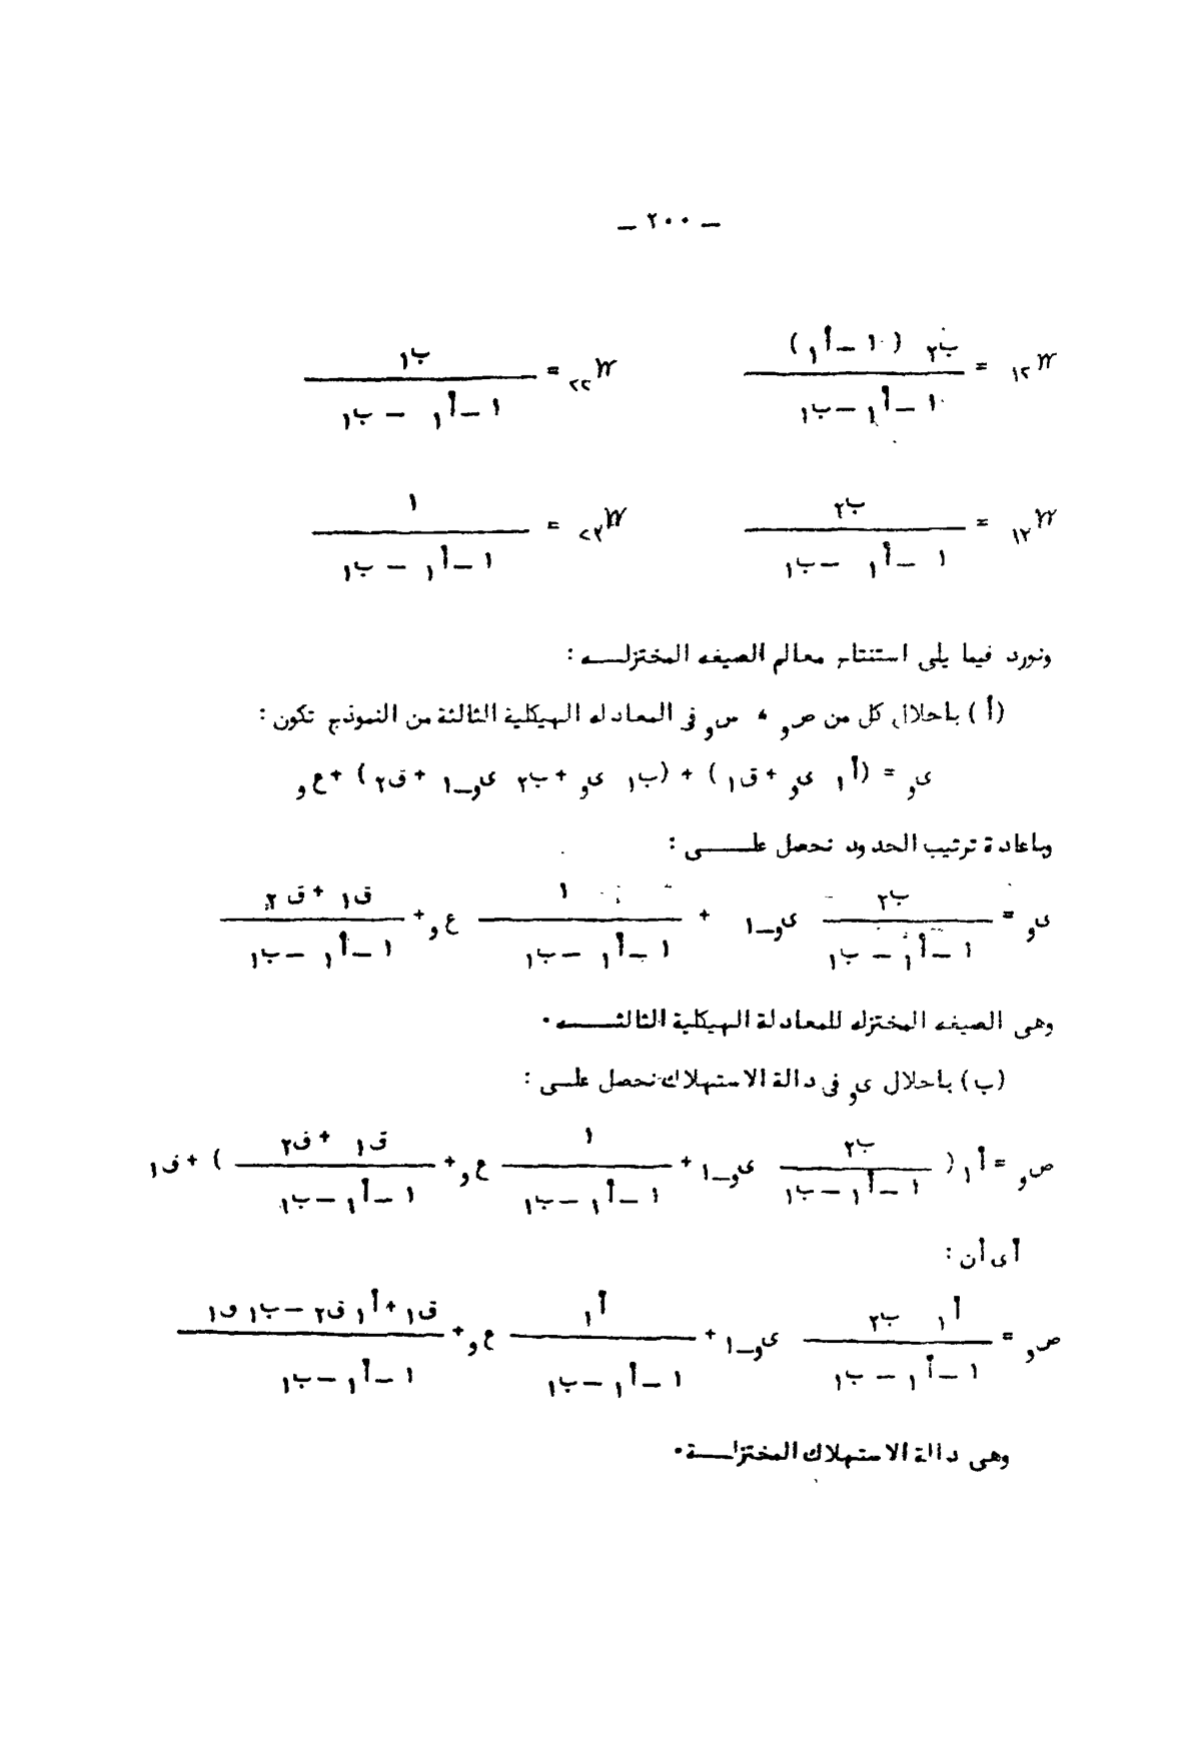 ــ ٢٠٠ ــ
π١٢ = ب٢ (١ ــ أ١) / ١ ــ أ١ ــ ب١    π٢٢ = ب١ / ١ ــ أ١ ــ ب١
π١٣ = ب٢ / ١ ــ أ١ ــ ب١    π٢٣ = ١ / ١ ــ أ١ ــ ب١
ونورد فيما يلى استنتاج معالم الصيغه المختزلــــه :
(أ) باحلال كل من صو ، سو فى المعادله الهيكلية الثالثة من النموذج تكون :
ىو = (أ١ ىو + ق١) + (ب١ ىو + ب٢ ىو ــ ١ + ق٢) + ع و
وباعادة ترتيب الحدود نحصل علــــــى :
ىو = ب٢ / ١ ــ أ١ ــ ب١ ىو ــ ١ + ١ / ١ ــ أ١ ــ ب١ ع و + ق١ + ق٢ / ١ ــ أ١ ــ ب١
وهى الصيغه المختزله للمعادلة الهيكلية الثالثــــــه .
(ب) باحلال ىو فى دالة الاستهلاك نحصل علــى :
صو = أ١ ( ب٢ / ١ ــ أ١ ــ ب١ ىو ــ ١ + ١ / ١ ــ أ١ ــ ب١ ع و + ق١ + ق٢ / ١ ــ أ١ ــ ب١ ) + ق١
أى أن :
صو = أ١ ب٢ / ١ ــ أ١ ــ ب١ ىو ــ ١ + أ١ / ١ ــ أ١ ــ ب١ ع و + ق١ + أ١ ق٢ ــ ب١ ق١ / ١ ــ أ١ ــ ب١
وهى دالة الاستهلاك المختزلـــــة .